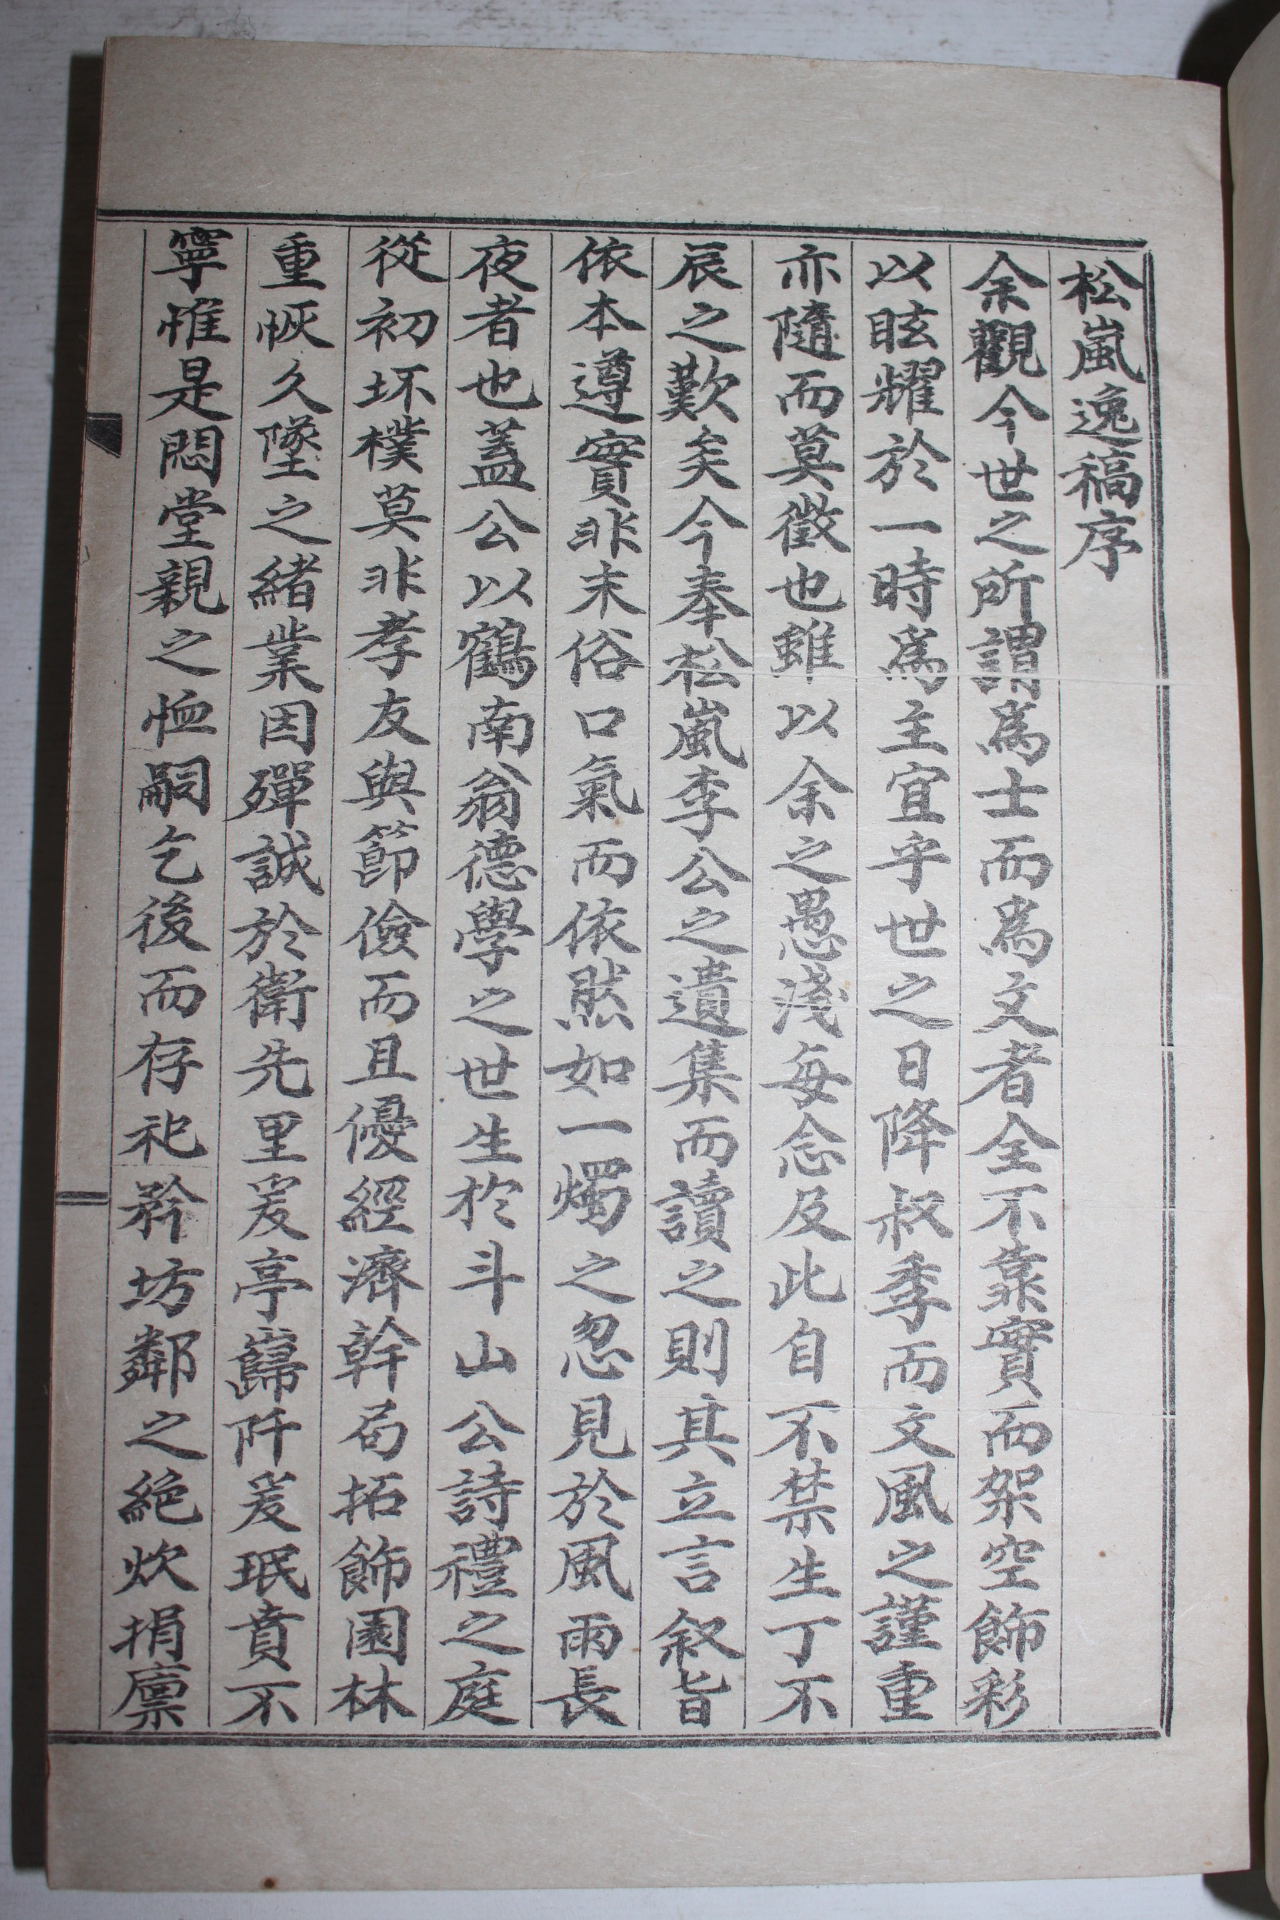 松嵐逸稿序
余觀今世之所謂爲士而爲文者全不靠實而架空飾彩
以眩耀於一時爲主宜乎世之日降叔季而文風之謹重
亦隨而莫徵也雖以余之愚淺每念及此自不禁生丁不
辰之歎矣今奉松嵐李公之遺集而讀之則其立言叙旨
依本遵實非末俗口氣而依然如一燭之忽見於風雨長
夜者也蓋公以鶴南翁德學之世生於斗山公詩禮之庭
從初坯樸莫非孝友與節儉而且優經濟幹局拓飾園林
重恢久墜之緖業因殫誠於衛先里爰亭巋阡爰珉賁不
寧惟是悶堂親之恤嗣乞後而存祀矜坊鄰之絶炊捐廪